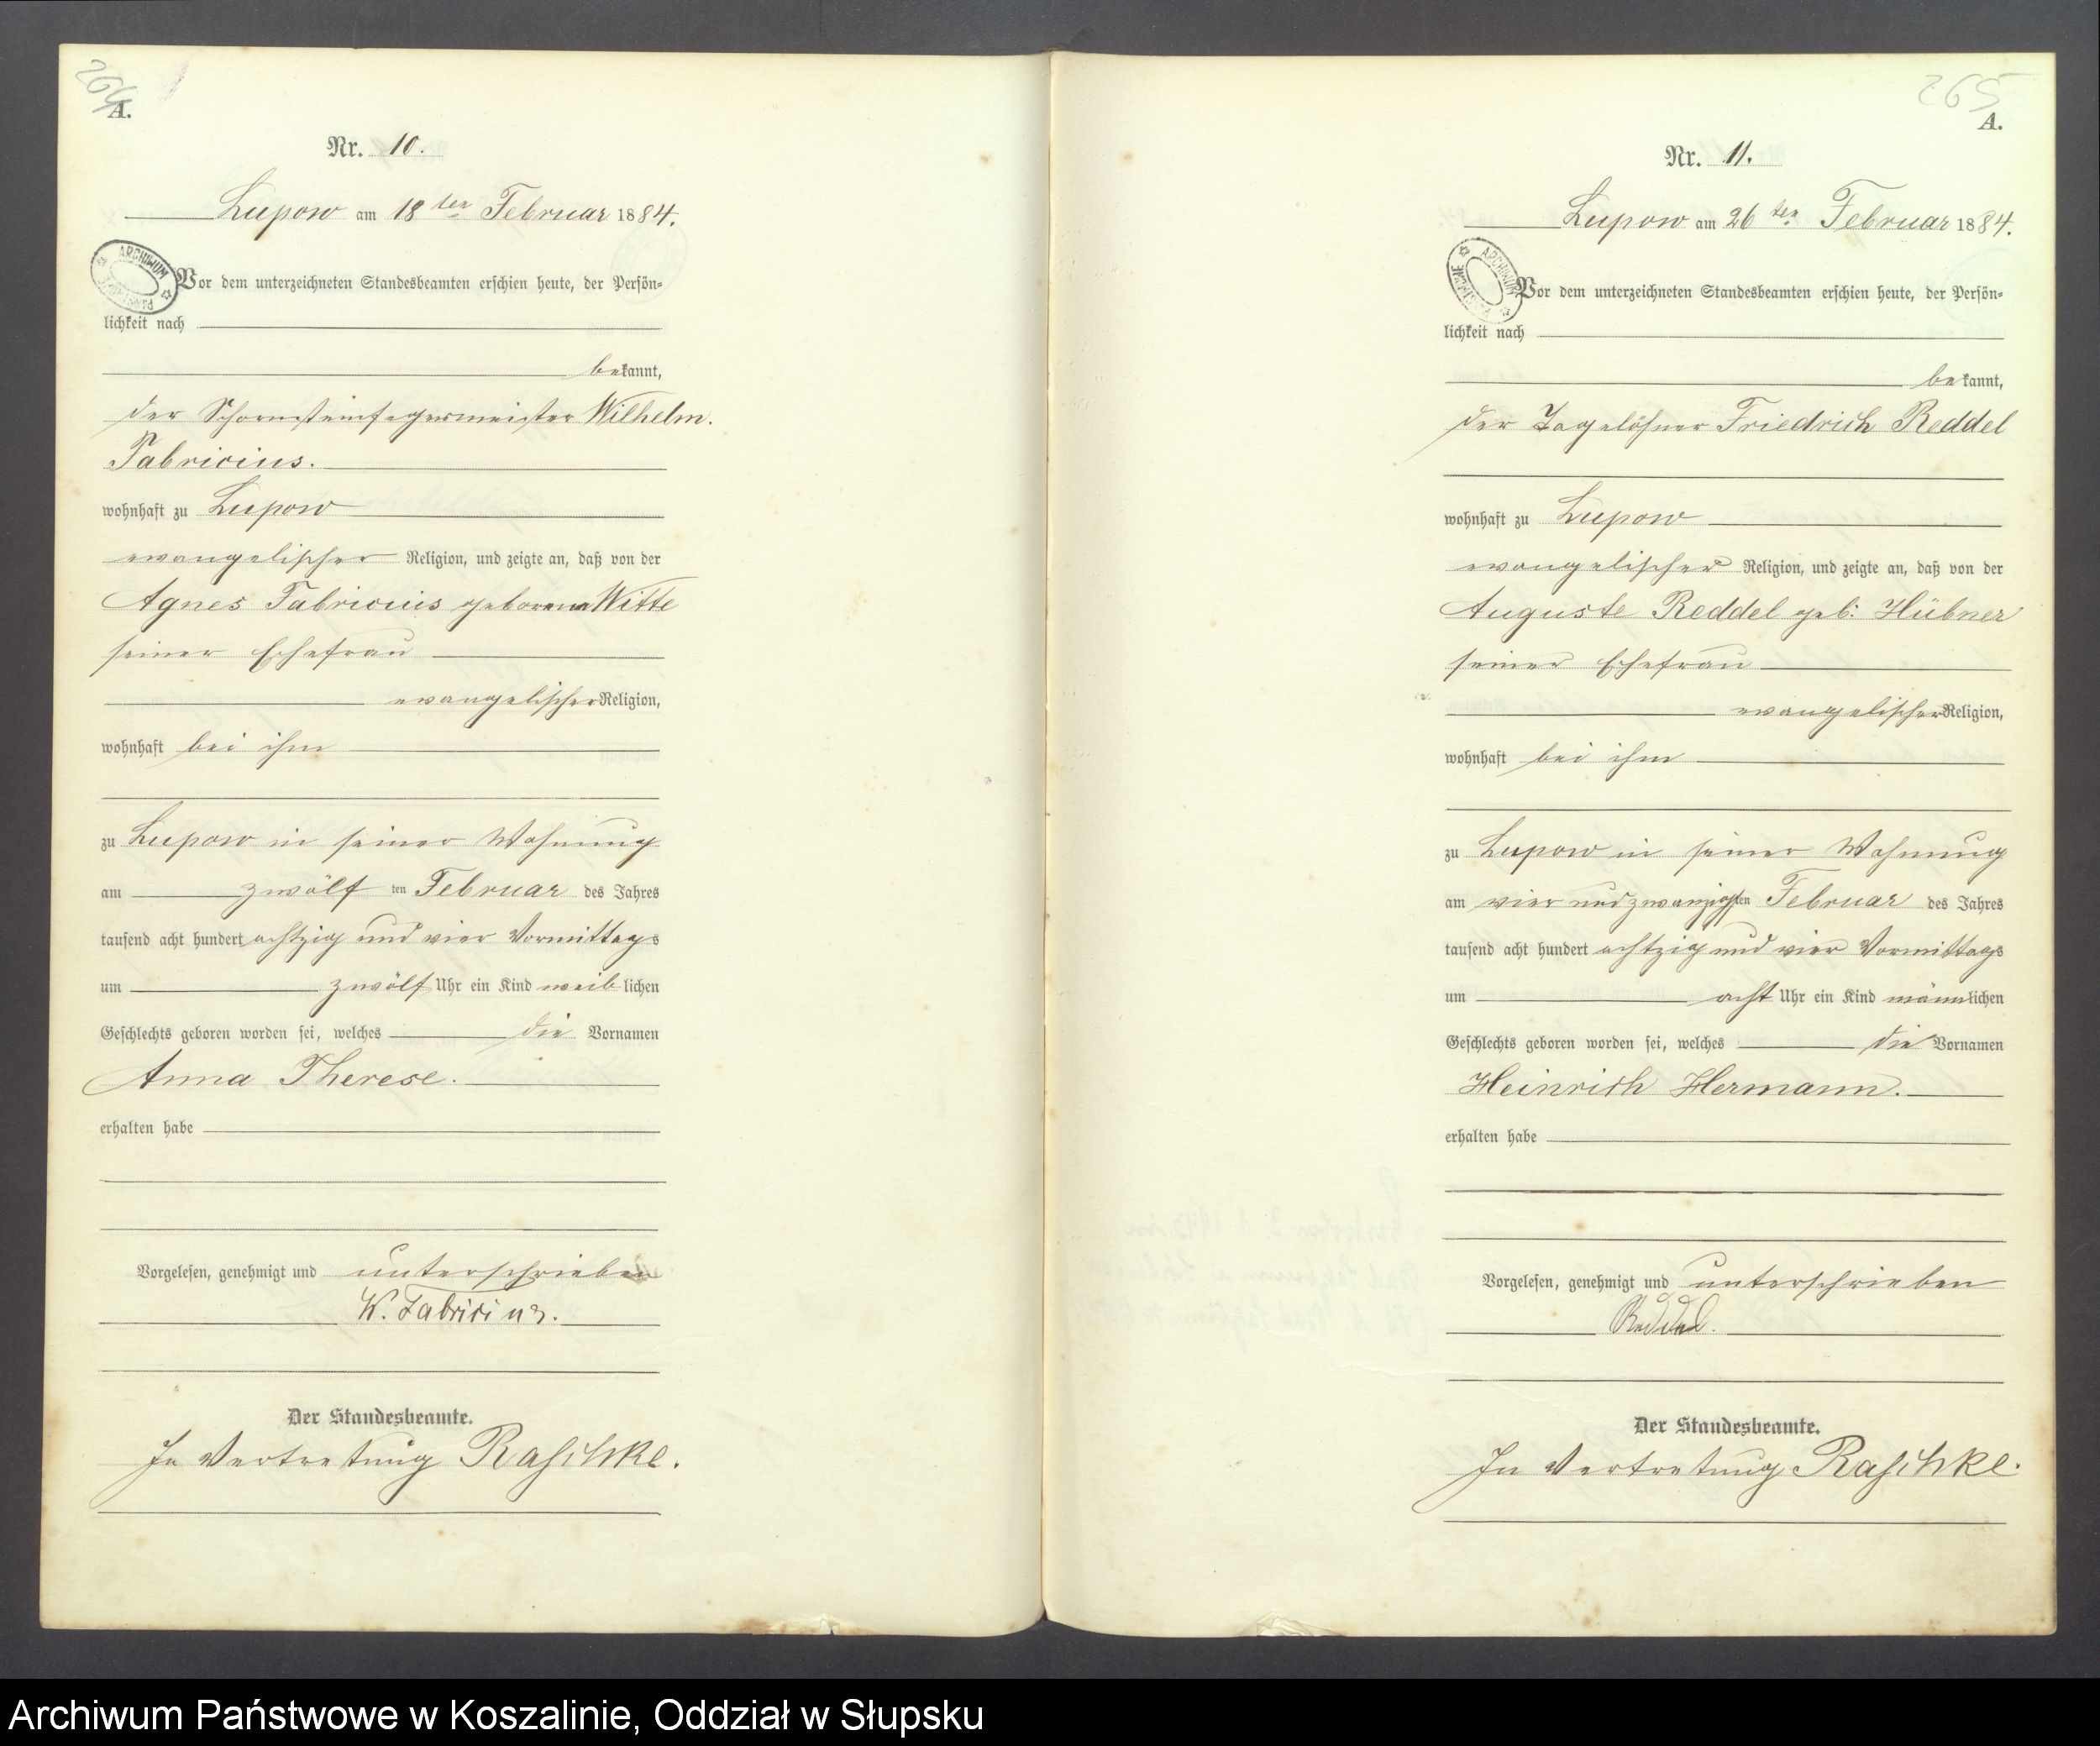 264
A.
Nr. 10.
Lupow am 18ten Februar 1884.
ARCHIWUM
Vor dem unterzeichneten Standesbeamten erschien heute, der Persön-
lichkeit nach
bekannt,
der Schornsteinfegermeister Wilhelm
Fabricius.
wohnhaft zu Lupow
evangelischer Religion, und zeigte an, daß von der
Agnes Fabricius geborene Witte
seiner Ehefrau
evangelischer Religion,
wohnhaft bei ihm
zu Lupow in seiner Wohnung
am zwölf ten Februar des Jahres
tausend acht hundert achtzig und vier Vormittags
um zwölf Uhr ein Kind weiblichen
Geschlechts geboren worden sei, welches die Vornamen
Anna Therese.
erhalten habe
Vorgelesen, genehmigt und unterschrieben
W. Fabricius.
Der Standesbeamte.
In Vertretung Raschke.
265
A.
Nr. 11.
Lupow am 26ten Februar 1884.
ARCHIWUM
Vor dem unterzeichneten Standesbeamten erschien heute, der Persön-
lichkeit nach
bekannt,
der Tagelöhner Friedrich Reddel
wohnhaft zu Lupow
evangelischer Religion, und zeigte an, daß von der
Auguste Reddel geb: Hübner
seiner Ehefrau
evangelischer Religion,
wohnhaft bei ihm
zu Lupow in seiner Wohnung
am vier und zwanzigsten Februar des Jahres
tausend acht hundert achtzig und vier Vormittags
um acht Uhr ein Kind männlichen
Geschlechts geboren worden sei, welches die Vornamen
Heinrich Hermann.
erhalten habe
Vorgelesen, genehmigt und unterschrieben
Reddel.
Der Standesbeamte.
In Vertretung Raschke.
Archiwum Państwowe w Koszalinie, Oddział w Słupsku